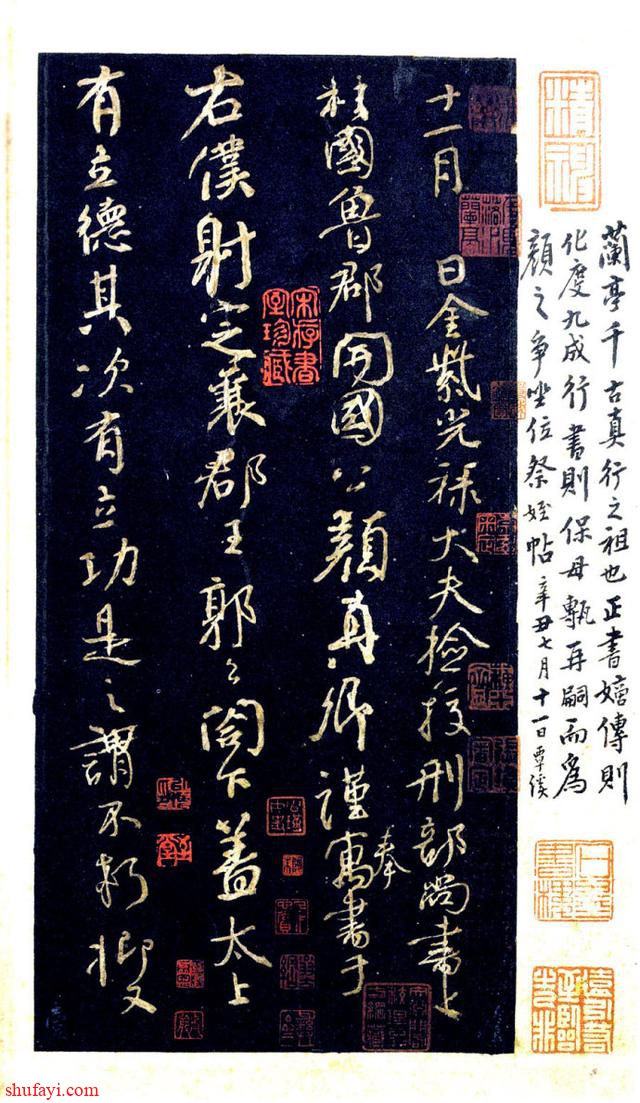 蘭亭千古真行之祖也正書嫡傳則
化度九成行書則保母甎再嗣而爲
顏之爭坐位祭姪帖辛丑七月十一日覃溪
十一月 日金紫光祿大夫撿挍刑部尚書上
柱國魯郡開國公顏真卿謹奉寓書于
右僕射定襄郡王郭公閤下蓋太上
有立德其次有立功是之謂不朽抑又
宋存書室珍藏
shufayi.com